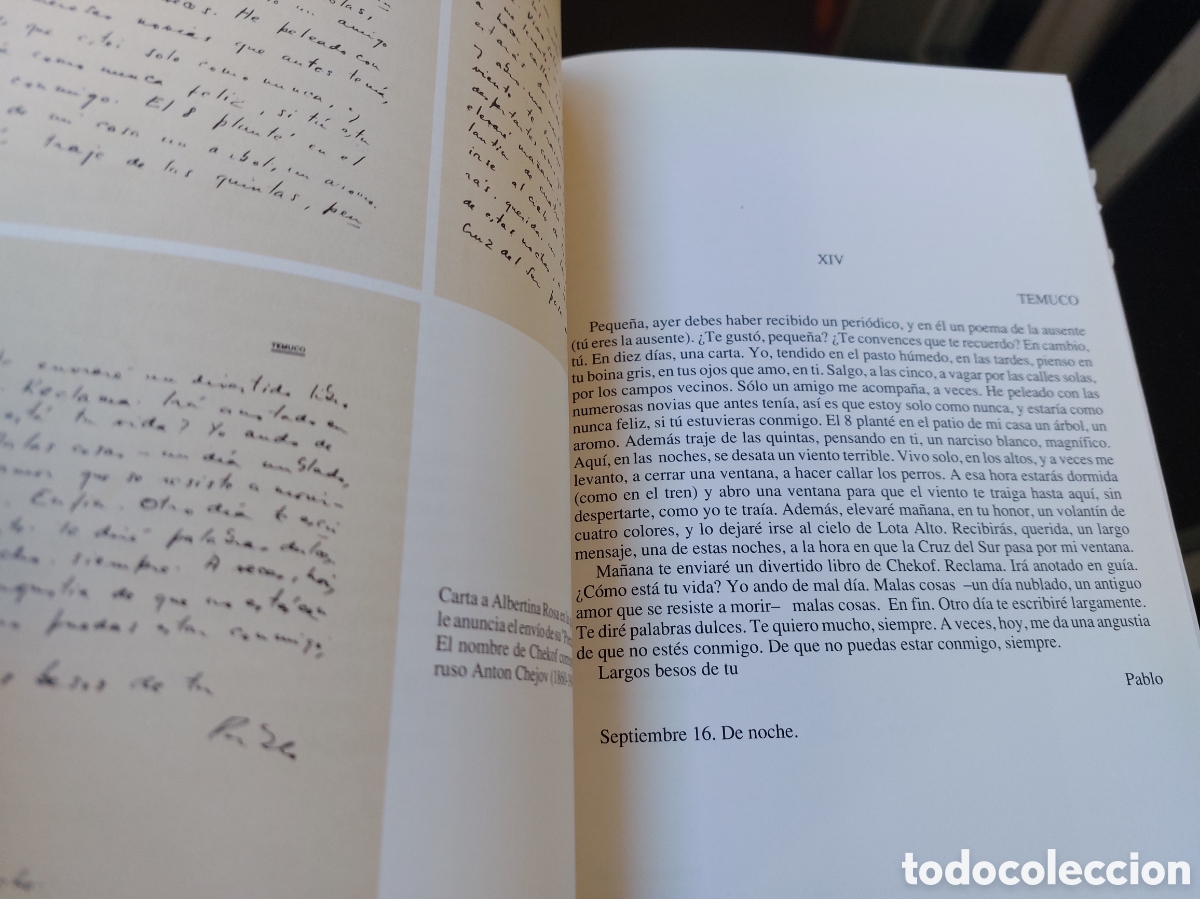 He peleado con
novias que antes tenía,
que estoi solo como nunca, i
como nunca feliz, si tú estu
conmigo. El 8 planté en el
de mi casa un arbol, un aromo.
traje de las quintas, pen
de estas noches
Cruz del Sur
TEMUCO
enviaré un divertido libro
Reclama. Irá anotado en
está tu vida? Yo ando de
malas cosas - un día nublado,
amor que se resiste a morir-
Enfin. Otro día te escri
te diré palabras dulces,
siempre. A veces, hoy,
angustia de que no estés con
puedas estar conmigo,
besos de tu
Pablo
Carta a Albertina Rosa en la
le anuncia el envío de su
El nombre de Chekof
ruso Anton Chejov
XIV
TEMUCO
Pequeña, ayer debes haber recibido un periódico, y en él un poema de la ausente
(tú eres la ausente). ¿Te gustó, pequeña? ¿Te convences que te recuerdo? En cambio,
tú. En diez días, una carta. Yo, tendido en el pasto húmedo, en las tardes, pienso en
tu boina gris, en tus ojos que amo, en ti. Salgo, a las cinco, a vagar por las calles solas,
por los campos vecinos. Sólo un amigo me acompaña, a veces. He peleado con las
numerosas novias que antes tenía, así es que estoy solo como nunca, y estaría como
nunca feliz, si tú estuvieras conmigo. El 8 planté en el patio de mi casa un árbol, un
aromo. Además traje de las quintas, pensando en ti, un narciso blanco, magnífico.
Aquí, en las noches, se desata un viento terrible. Vivo solo, en los altos, y a veces me
levanto, a cerrar una ventana, a hacer callar los perros. A esa hora estarás dormida
(como en el tren) y abro una ventana para que el viento te traiga hasta aquí, sin
despertarte, como yo te traía. Además, elevaré mañana, en tu honor, un volantín de
cuatro colores, y lo dejaré irse al cielo de Lota Alto. Recibirás, querida, un largo
mensaje, una de estas noches, a la hora en que la Cruz del Sur pasa por mi ventana.
Mañana te enviaré un divertido libro de Chekof. Reclama. Irá anotado en guía.
¿Cómo está tu vida? Yo ando de mal día. Malas cosas –un día nublado, un antiguo
amor que se resiste a morir– malas cosas. En fin. Otro día te escribiré largamente.
Te diré palabras dulces. Te quiero mucho, siempre. A veces, hoy, me da una angustia
de que no estés conmigo. De que no puedas estar conmigo, siempre.
Largos besos de tu
Pablo
Septiembre 16. De noche.
todocoleccion